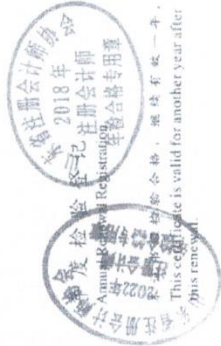 年度检验登记
Annual Renewal Registration
本证书经检验合格，继续有效一年。
This certificate is valid for another year after
this renewal.
省注册会计师协会
2018年
注册会计师
年检合格专用章
省注册会计师
2022年